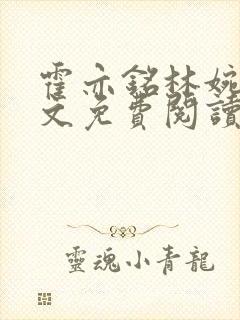 霍亦銘林婉
文免費閱讀
靈魂小青龍